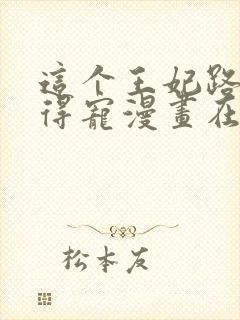 這个王妃路
得寵漫畫在
松本友